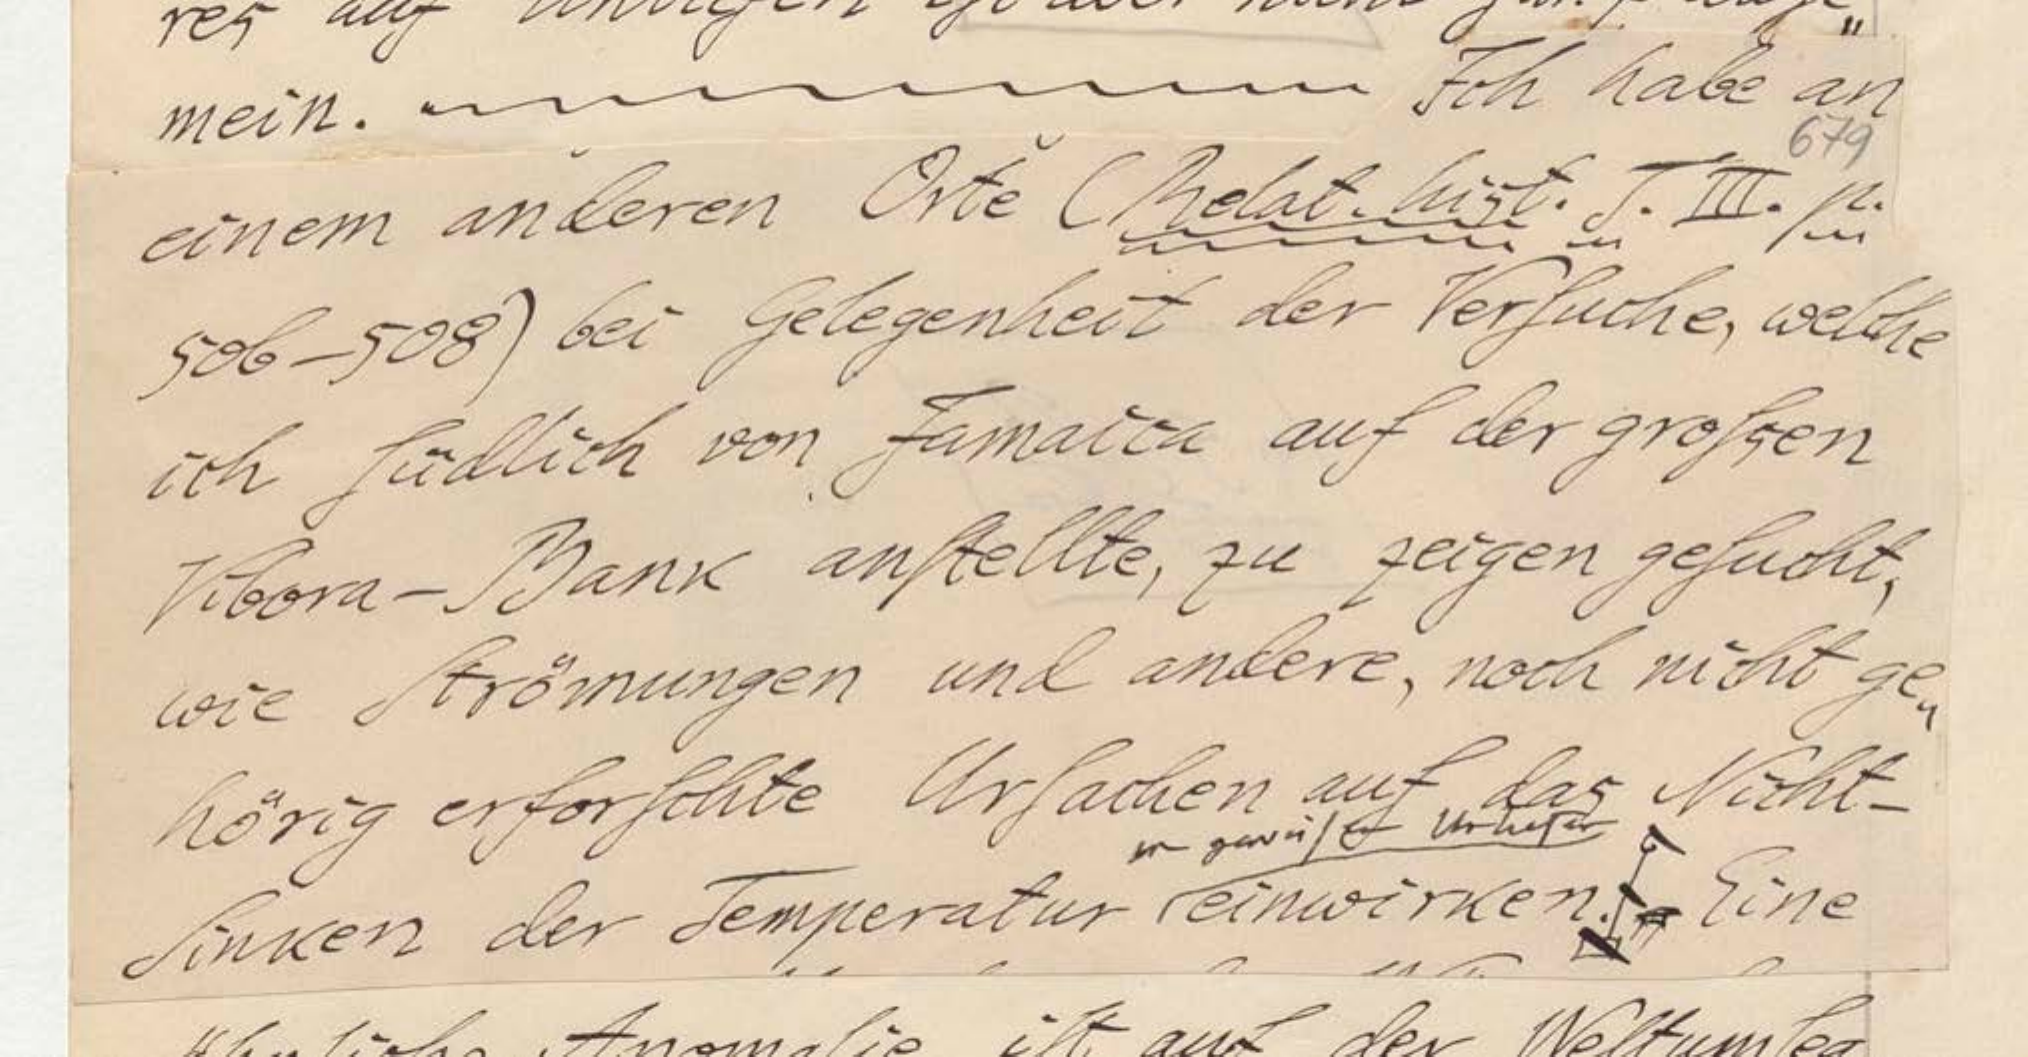 res auf
mein. Ich habe an
679
einem anderen Orte (Relat. hist. T. III. p.
506–508) bei Gelegenheit der Versuche, welche
ich südlich von Jamaica auf der großen
Vibora-Bank anstellte, zu zeigen gesucht,
wie Strömungen und andere, noch nicht ge„
hörig erforschte Ursachen auf das Nicht-
in gewisser
sinken der Temperatur einwirken. Eine
ähnliche Anomalie ist auf der Weltumseg